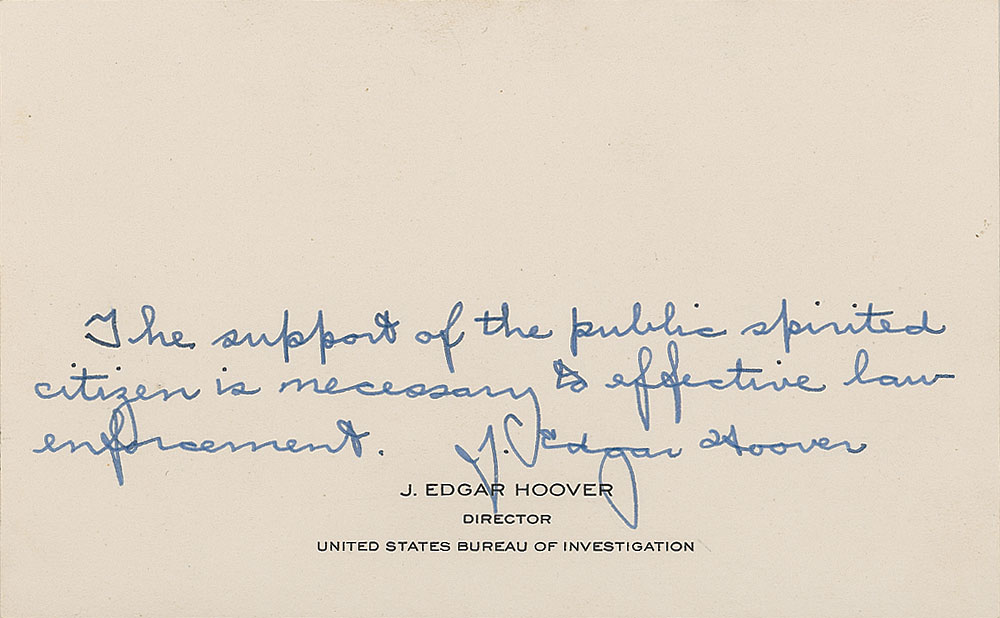 The support of the public spirited
citizen is necessary to effective law
enforcement. J. Edgar Hoover
J. EDGAR HOOVER
DIRECTOR
UNITED STATES BUREAU OF INVESTIGATION